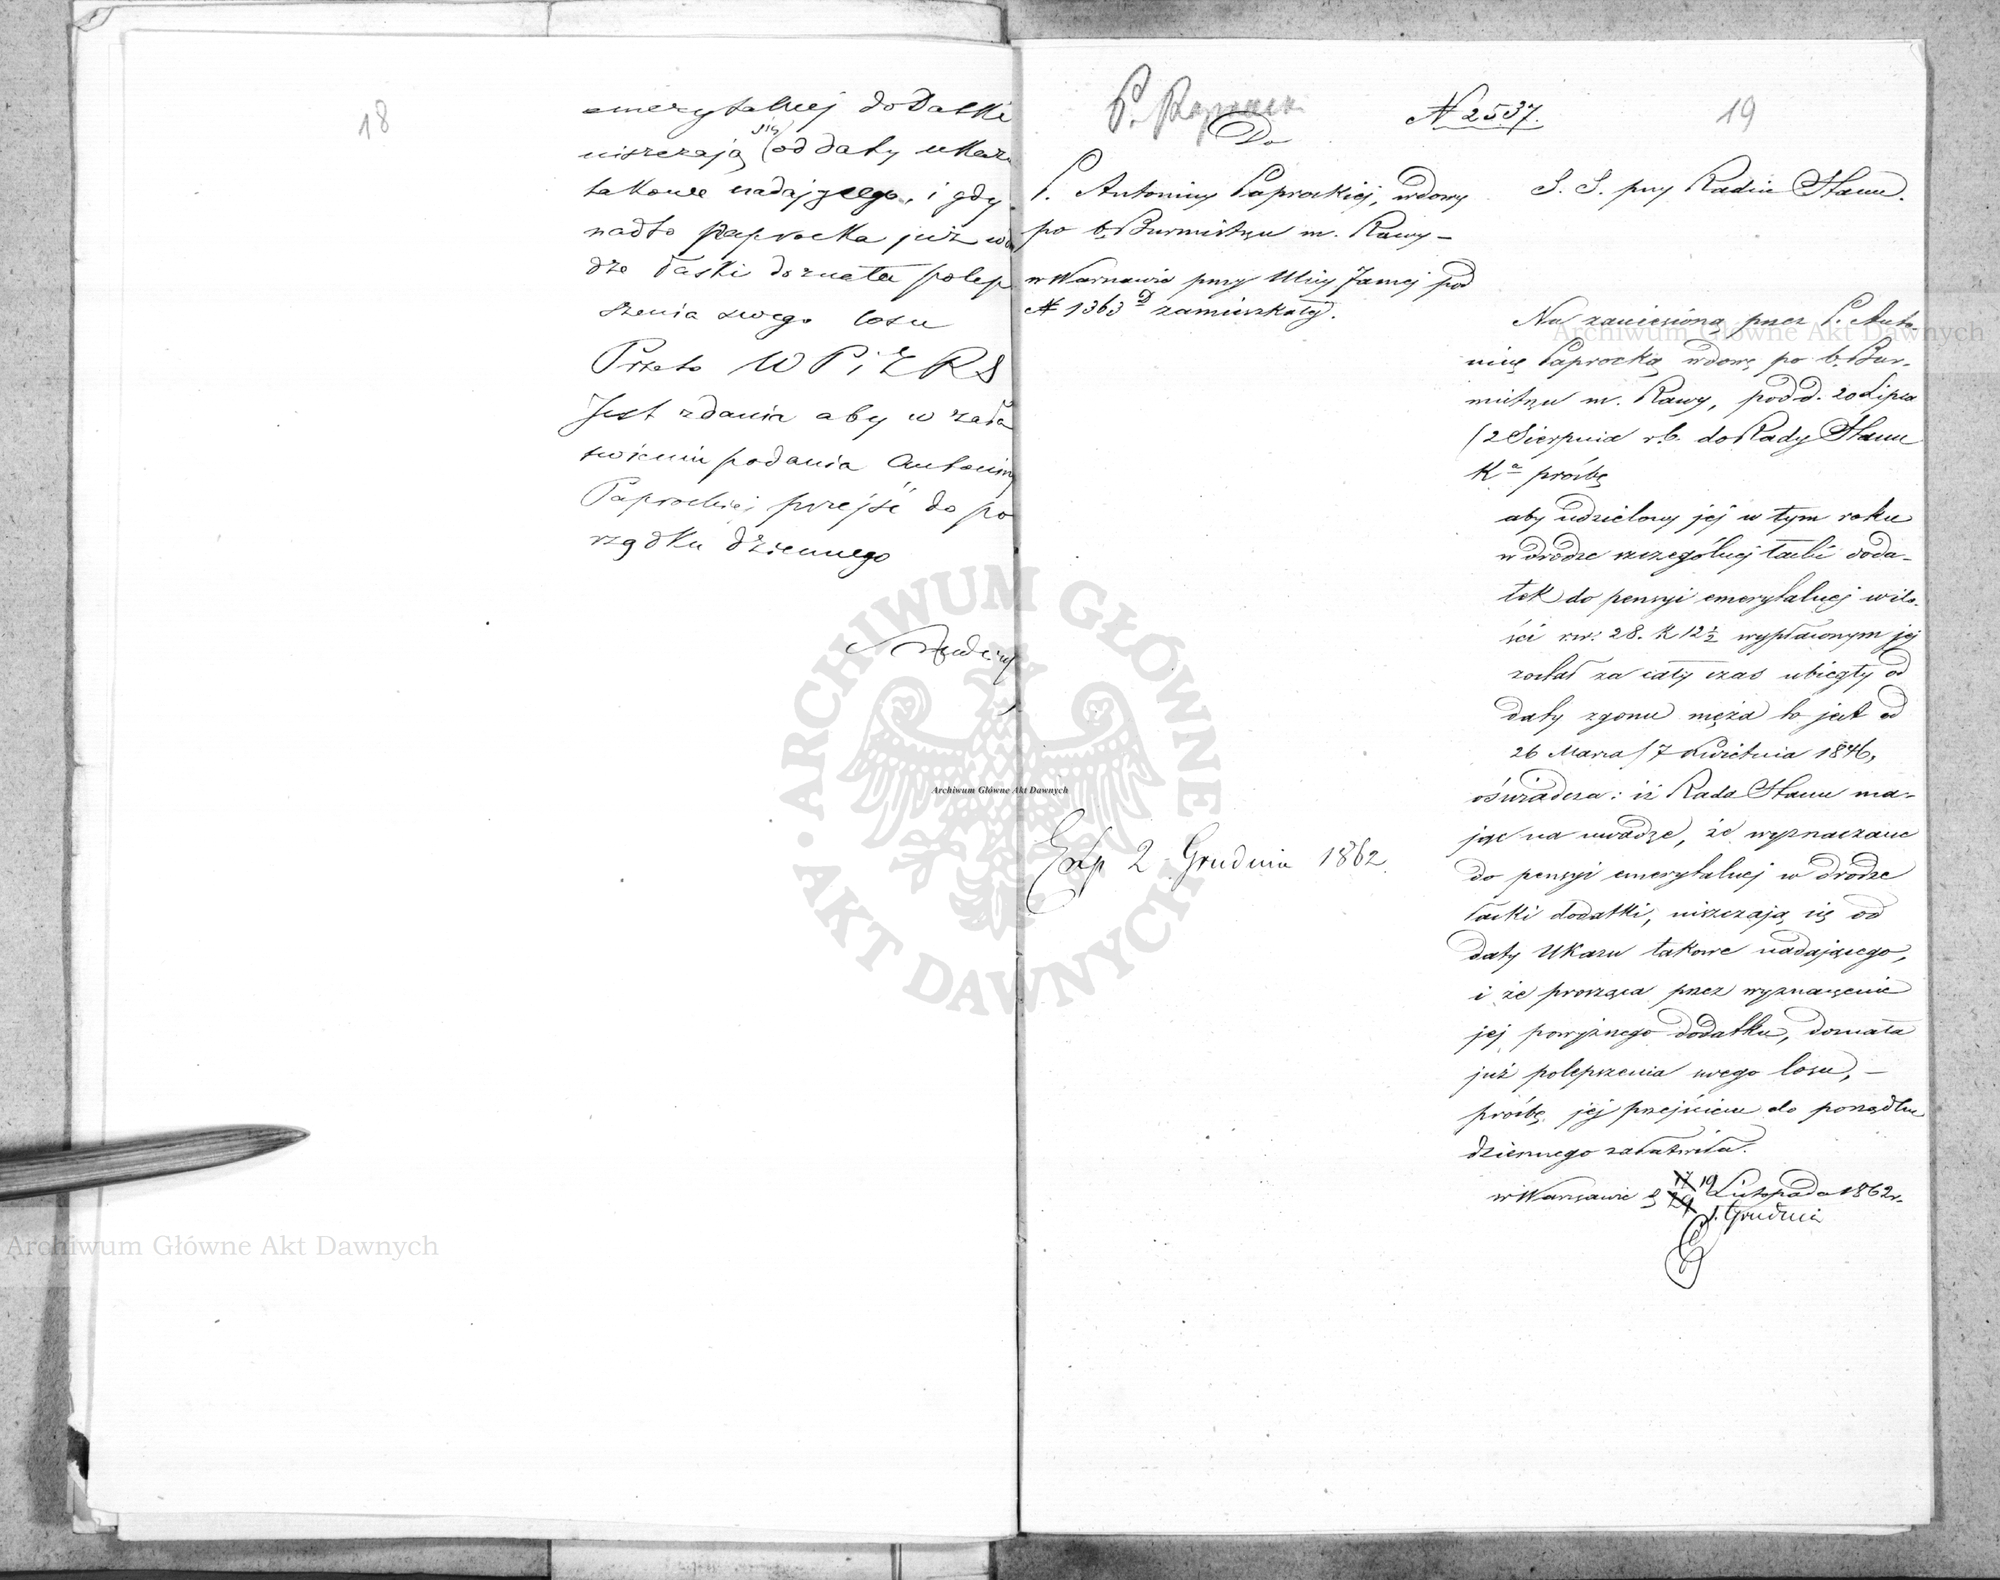 18
emerytalnej dodatki
uiszczają się od daty ukazu
takowe nadającego, i gdy
nadto Paprocka już w dro
dze łaski doznała polep
szenia swego losu
Przeto
Jest zdania aby w zała
twieniu podania Antoniny
Paprockiej przejść do po
rządku dziennego
19
N 2537.
Do
P. Antoniny Paprockiej, wdowy
po b. Burmistrzu m. Rawy –
w Warszawie przy Ulicy Jasnej pod
N 1363 D zamieszkałej.
S. S. przy Radzie Stanu.
Na zaniesioną przez P. Anto-
ninę Paprocką wdowę po b. Bur-
mistrzu m. Rawy, pod d. 20 Lipca
/2 Sierpnia r.b. do Rady Stanu
Ka prośbę
aby udzielony jej w tym roku
w drodze szczególnej łaski doda-
tek do pensyi emerytalnej w ilo-
ści rsr. 28. k 12½ wypłaconym jej
został za cały czas ubiegły od
daty zgonu męża to jest od
26 Marca/7 Kwietnia 1846,
oświadcza: iż Rada Stanu ma-
jąc na uwadze, że wyznaczane
do pensyi emerytalnej w drodze
łaski dodatki, uiszczają się od
daty Ukazu takowe nadającego,
i że prosząca przez wyznaczenie
jej powyższego dodatku, doznała
już polepszenia swego losu, –
prośbę jej przejściem do porządku
dziennego załatwiła.
w Warszawie d 17 19 Listopada 1862 r.
29 1. Grudnia
Exp 2 Grudnia 1862.
Archiwum Główne Akt Dawnych
ARCHIWUM GŁÓWNE AKT DAWNYCH
Archiwum Główne Akt Dawnych
Archiwum Główne Akt Dawnych